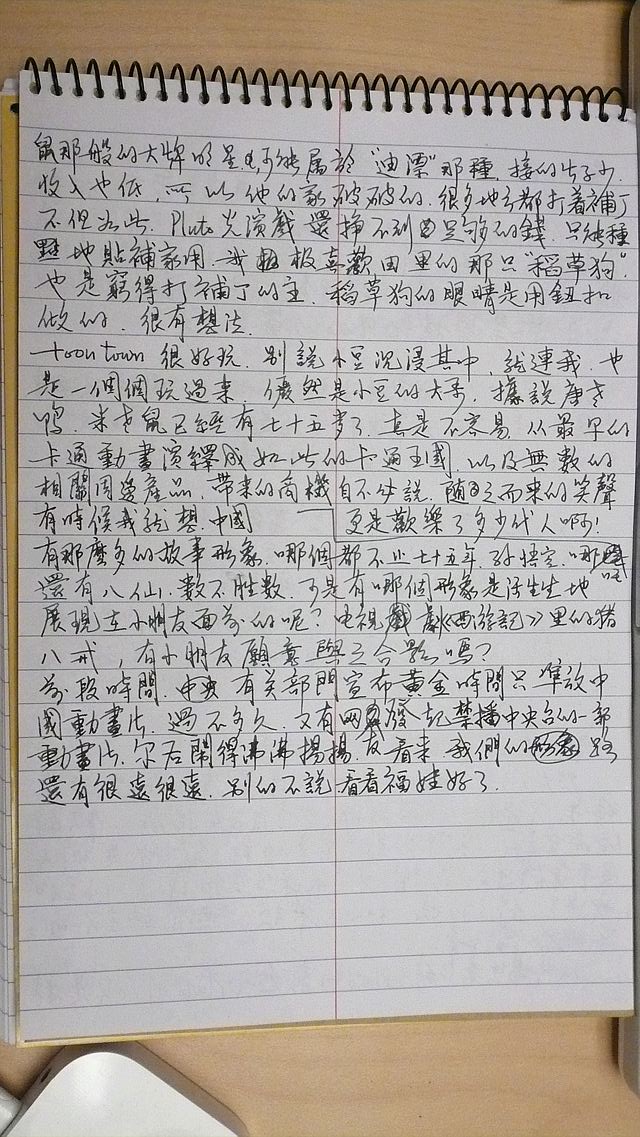 鼠那般的大牌明星，可能属於“迪漂”那種，接的片子少，
收入也低，所以他的家破破的，很多地方都打着補丁
不但如此，Pluto光演戲還掙不到足够的錢，只能種
點地貼補家用。我極喜歡田里的那只“稻草狗”，
也是窮得打補丁的主，稻草狗的眼睛是用鈕扣
做的，很有想法。
toontown 很好玩，别說小豆沉浸其中，就連我，也
是一個個玩過來，儼然是小豆的大哥。據說唐老
鴨、米老鼠已經有七十五岁了，真是不容易，从最早的
卡通動畫演繹成如此的卡通王國，以及無數的
相關周邊産品，带来的商機自不必說，随之而来的笑聲
更是歡樂了多少代人啊！
有時候我就想，中國
有那麼多的故事形象，哪個都不止七十五年，孙悟空，哪吒
還有八仙，数不胜數，可是有哪個形象是活生生地
展現在小朋友面前的呢？电视劇《西游記》里的猪
八戒，有小朋友願意與之合影嗎？
前段時間，有关部門宣布黄金時間只準放中
國動畫片，過不多久，又有網友發起禁播中央台的一部
動畫片，尔后鬧得沸沸揚揚，看来我們的路
還有很遠很遠，别的不說，看看福娃好了。